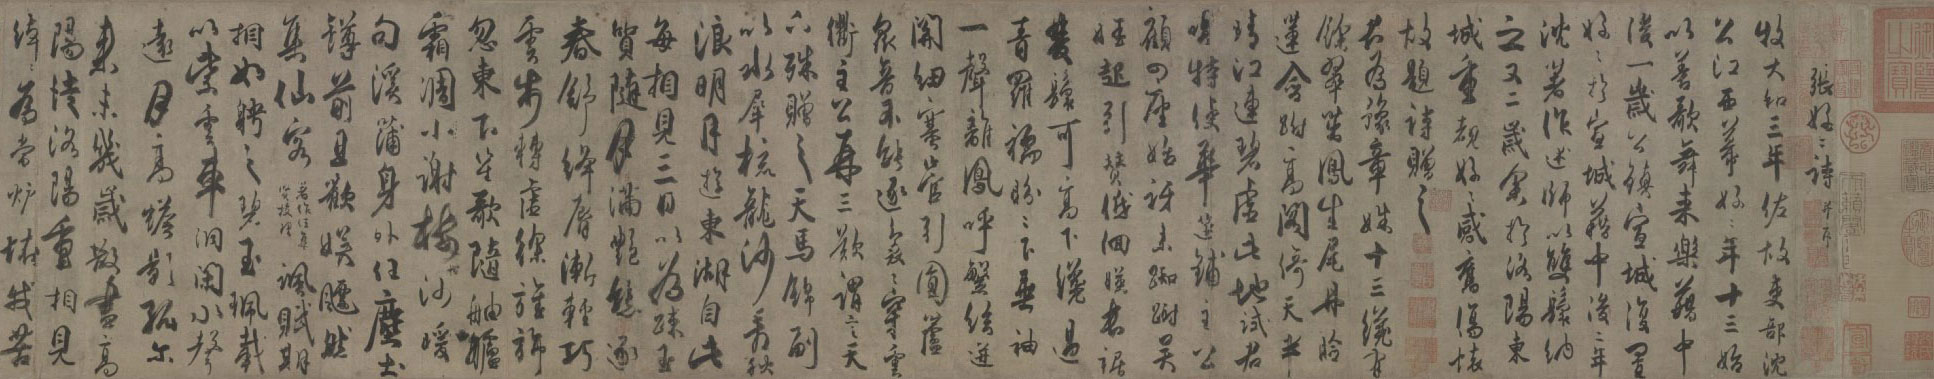 張好好詩并序
牧大和三年佐故吏部沈
公江西幕好好年十三始
以善歌舞来樂籍中
後一歲公鎮宣城復置
好好於宣城籍中後二年
沈著作述師以雙鬟納
之又二歲余於洛陽東
城重覩好好感舊傷懷
故題詩贈之
君為豫章姝十三纔有
餘翠茁鳳生尾丹臉
蓮含跗高閣倚天半
晴江連碧虛此地試君
唱特使華筵鋪主公
顧四座始訝来踟蹰吳
娃起引贊低佪映長裾
雙鬟可高下纔過
青羅襦盼盼下垂袖
一聲離鳳呼繁絃迸
關紐塞管引圓蘆
衆音不能逐裊裊穿雲
衢主公再三歎謂言天
下殊贈之天馬錦副
以水犀梳龍沙看秋
浪明月遊東湖自此
每相見三日以為踈玉
質隨月滿豔態逐
春舒絳脣漸輕巧
雲步轉虛徐旌旆
忽東下笙歌隨舳艫
霜凋小謝樹沙暖
句溪蒲身外任塵土
罇前且歡娛飄然
集仙客著作任集賢校理諷賦期
相如聘之碧玉珮載
以紫雲車洞閉水聲
遠月高蟾影孤尔
来未幾歲散盡高
陽徒洛陽重相見
綽綽為當爐怪我苦